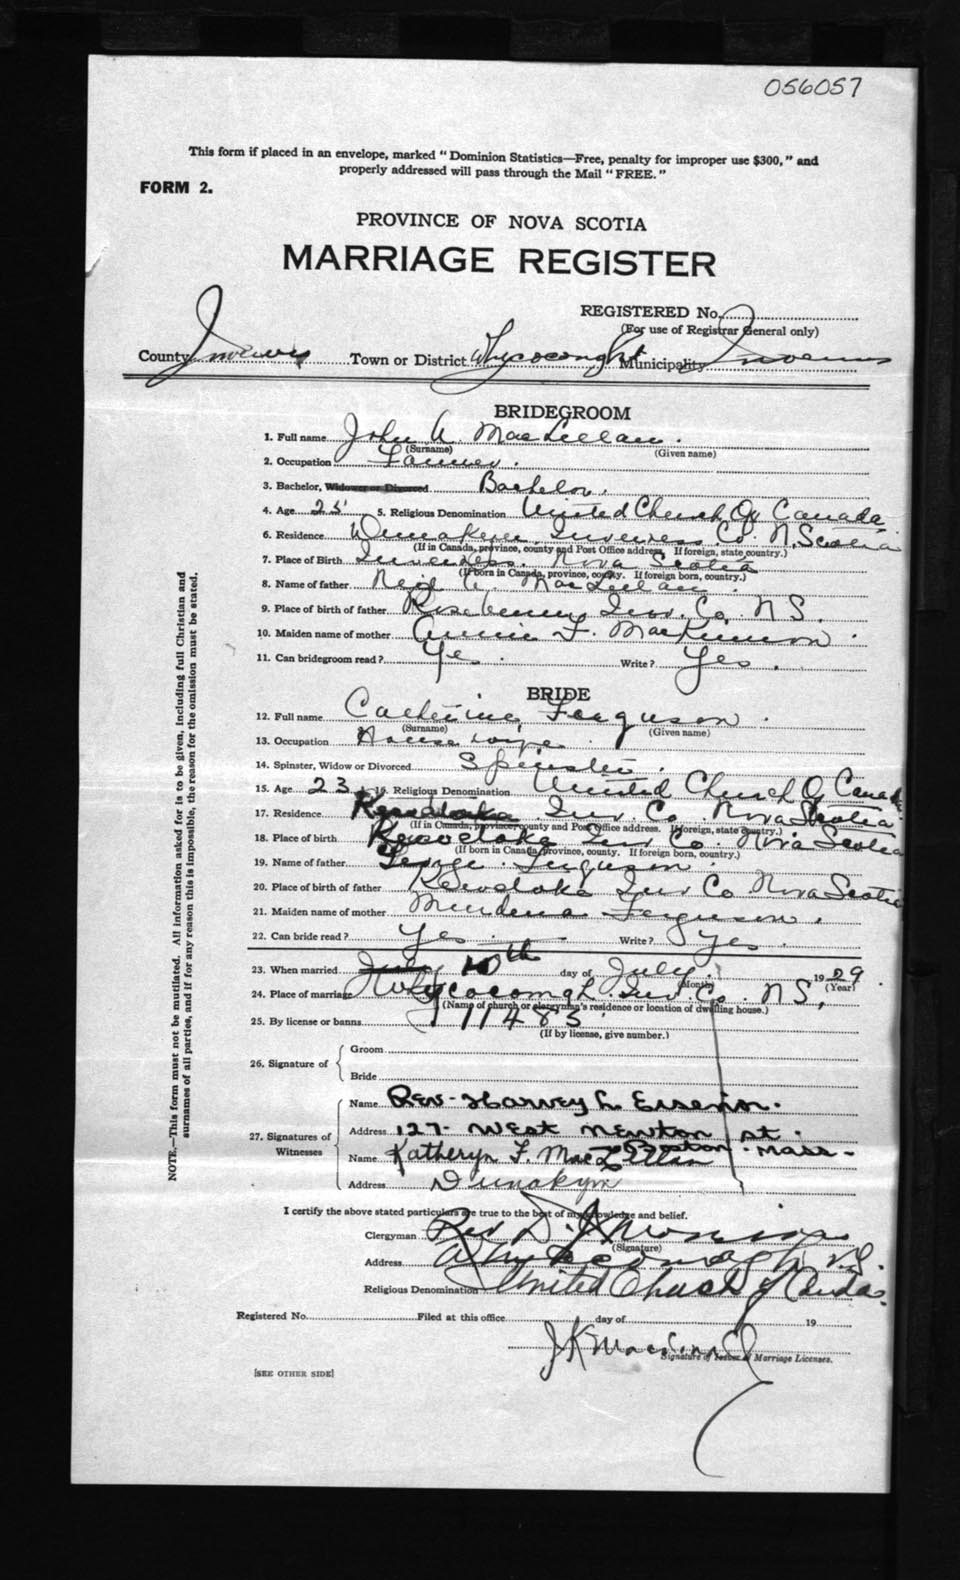 056057
This form if placed in an envelope, marked "Dominion Statistics—Free, penalty for improper use $300," and
properly addressed will pass through the Mail "FREE."
FORM 2.
PROVINCE OF NOVA SCOTIA
MARRIAGE REGISTER
REGISTERED No.
(For use of Registrar General only)
County Inverness Town or District Whycocomagh Municipality Inverness
BRIDEGROOM
1. Full name John A. MacLellan.
(Surname) (Given name)
2. Occupation Farmer.
3. Bachelor, Widower or Divorced Bachelor.
4. Age 25 5. Religious Denomination United Church Of Canada
6. Residence Dunakyn Inverness Co. N. Scotia
(If in Canada, province, county and Post Office address. If foreign, state country.)
7. Place of Birth Inverness. Nova Scotia
(If born in Canada, province, county. If foreign born, country.)
8. Name of father Neil A. MacLellan.
9. Place of birth of father Inv. Co. N S.
10. Maiden name of mother Annie F. MacKinnon.
11. Can bridegroom read? Yes. Write? Yes.
BRIDE
12. Full name Catherine Ferguson.
(Surname) (Given name)
13. Occupation Housewife
14. Spinster, Widow or Divorced Spinster.
15. Age 23 16. Religious Denomination United Church Of Canada
17. Residence Inv. Co. Nova Scotia
(If in Canada, province, county and Post Office address. If foreign, state country.)
18. Place of birth Kewstoke Inv Co. Nova Scotia
(If born in Canada, province, county. If foreign born, country.)
19. Name of father George Ferguson.
20. Place of birth of father Kewstoke Inv Co Nova Scotia
21. Maiden name of mother Ferguson.
22. Can bride read? Yes Write? Yes.
23. When married July 10th day of July. 1929
(Month) (Year)
24. Place of marriage Whycocomagh Inv Co. N S,
(Name of church or clergyman's residence or location of dwelling house.)
25. By license or banns 11483
(If by license, give number.)
26. Signature of Groom
Bride
27. Signatures of Witnesses
Name Rev. Harvey L.
Address 127- West Newton St.
Boston. Mass-
Name Katheryn F. MacLellan
Address Dunakyn
I certify the above stated particulars are true to the best of my knowledge and belief.
Clergyman Rev D.
(Signature)
Address Whycocomagh N.S.
Religious Denomination United Church of Canada.
Registered No. Filed at this office day of 19
J K
Signature of Issuer of Marriage Licenses.
[SEE OTHER SIDE]
NOTE.—This form must not be mutilated. All information asked for is to be given, including full Christian and
surnames of all parties, and if for any reason this is impossible, the reason for the omission must be stated.